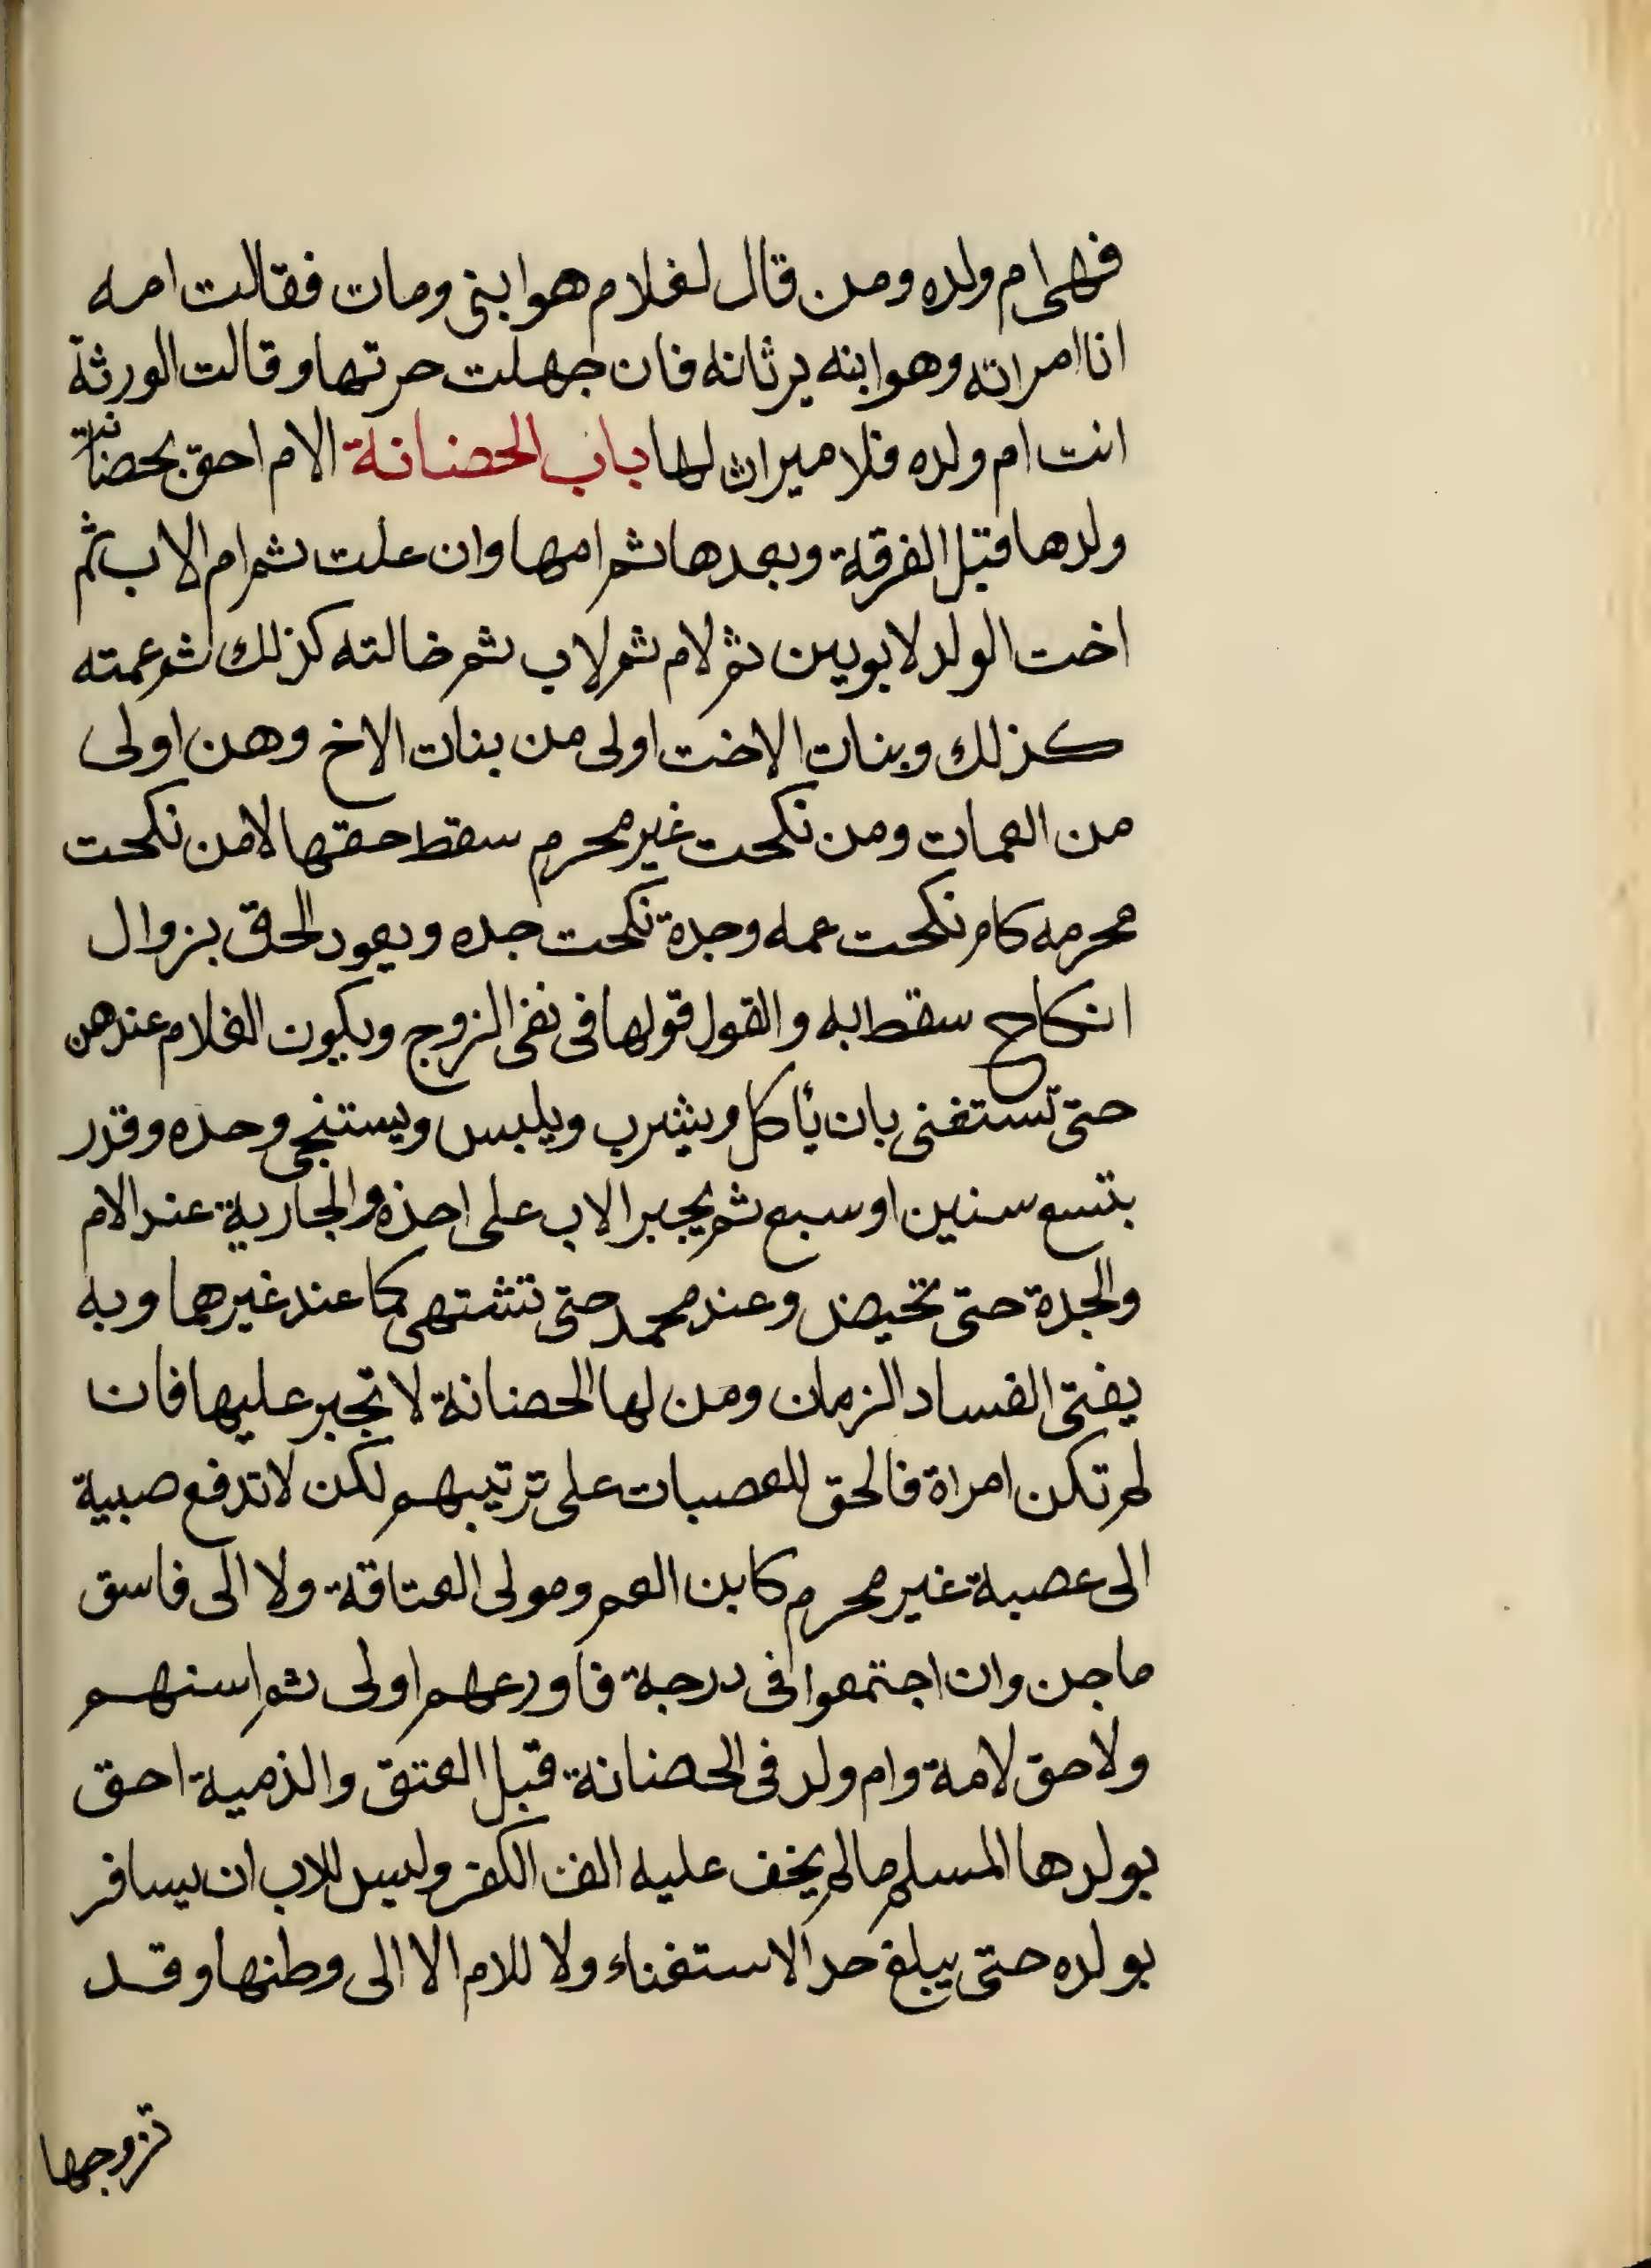 فهى ام ولده ومن قال لغلام هو ابنى ومات فقالت امه
انا امراته وهو ابنه يرثانه فان جهلت حرتها وقالت الورثة
انت ام ولده فلا ميراث لها باب الحضانة الام احق بحضانة
ولدها قبل الفرقة وبعدها ثم امها وان علت ثم ام الاب ثم
اخت الولد لابوين ثم لام ثم لاب ثم خالته كذلك ثم عمته
كذلك وبنات الاخت اولى من بنات الاخ وهن اولى
من العمات ومن نكحت غير محرم سقط حقها لا من نكحت
محرمه كام نكحت عمه وجدة نكحت جده ويعود الحق بزوال
انكاح سقط به والقول قولها فى نفى الزوج ويكون الغلام عندهن
حتى تستغنى بان يأكل ويشرب ويلبس ويستنجى وحده وقدر
بتسع سنين او سبع ثم يجبر الاب على اخذه والجارية عند الام
والجدة حتى تحيض وعند محمد حتى تشتهى كما عند غيرهما وبه
يفتى الفساد الزمان ومن لها الحضانة لا تجبر عليها فان
لم تكن امراة فالحق للعصبات على ترتيبهم لكن لا تدفع صبية
الى عصبة غير محرم كابن العم ومولى العتاقة ولا الى فاسق
ماجن وان اجتمعوا فى درجة فاورعهم اولى ثم اسنهم
ولا حق لامة وام ولد فى الحضانة قبل العتق والذمية احق
بولدها المسلم ما لم يخف عليه الف الكفر وليس للاب ان يسافر
بولده حتى يبلغ حد الاستغناء ولا للام الا الى وطنها وقد
تزوجها